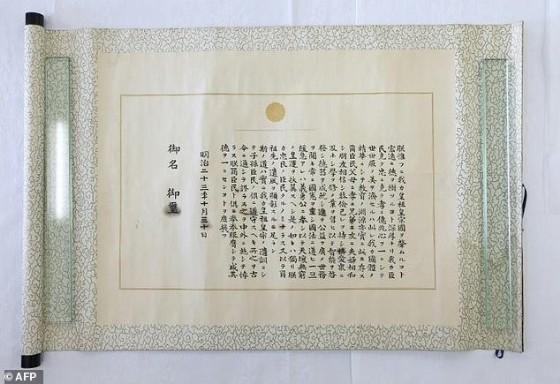 朕惟フニ我カ皇祖皇宗國ヲ肇ムルコト
宏遠ニ德ヲ樹ツルコト深厚ナリ我カ臣
民克ク忠ニ克ク孝ニ億兆心ヲ一ニシテ
世世厥ノ美ヲ濟セルハ此レ我カ國體ノ
精華ニシテ教育ノ淵源亦實ニ此ニ存ス
爾臣民父母ニ孝ニ兄弟ニ友ニ夫婦相和
シ朋友相信シ恭儉己レヲ持シ博愛衆ニ
及ホシ學ヲ修メ業ヲ習ヒ以テ智能ヲ啓
發シ德器ヲ成就シ進テ公益ヲ廣メ世務
ヲ開キ常ニ國憲ヲ重シ國法ニ遵ヒ一旦
緩急アレハ義勇公ニ奉シ以テ天壤無窮
ノ皇運ヲ扶翼スヘシ是ノ如キハ獨リ朕
カ忠良ノ臣民タルノミナラス又以テ爾
祖先ノ遺風ヲ顯彰スルニ足ラン
斯ノ道ハ實ニ我カ皇祖皇宗ノ遺訓ニシ
テ子孫臣民ノ俱ニ遵守スヘキ所之ヲ古
今ニ通シテ謬ラス之ヲ中外ニ施シテ悖
ラス朕爾臣民ト俱ニ拳々服膺シテ咸其
德ヲ一ニセンコトヲ庶幾フ
明治二十三年十月三十日
御名 御璽
© AFP